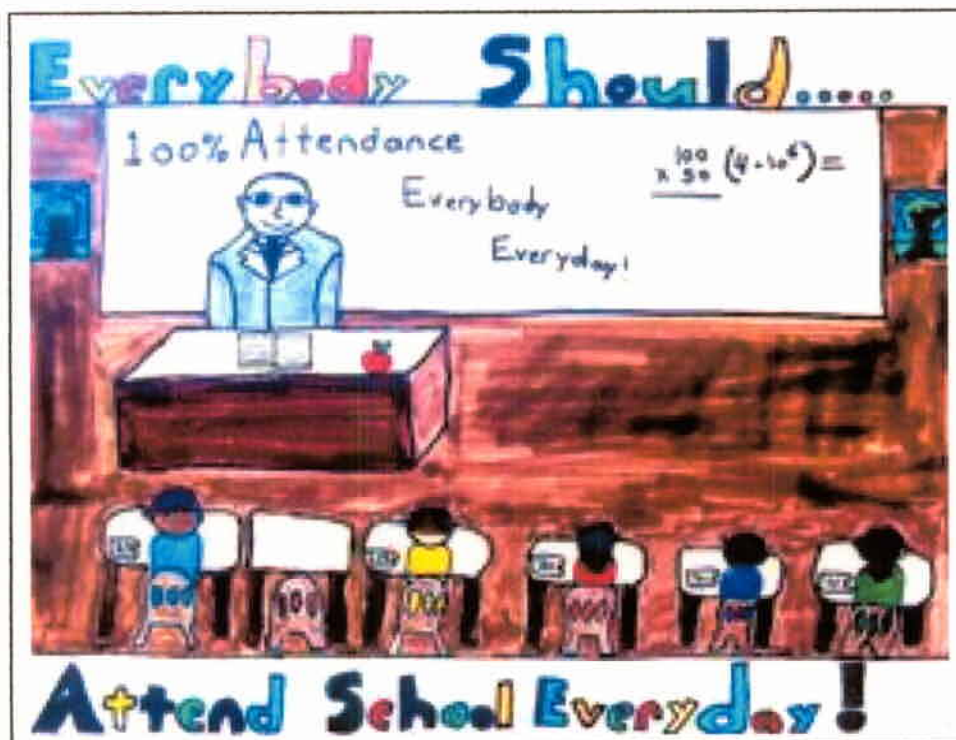 Everybody Should.....
100% Attendance
Everybody
Everyday!
100
x 50 (4·10⁶)=
Attend School Everyday!